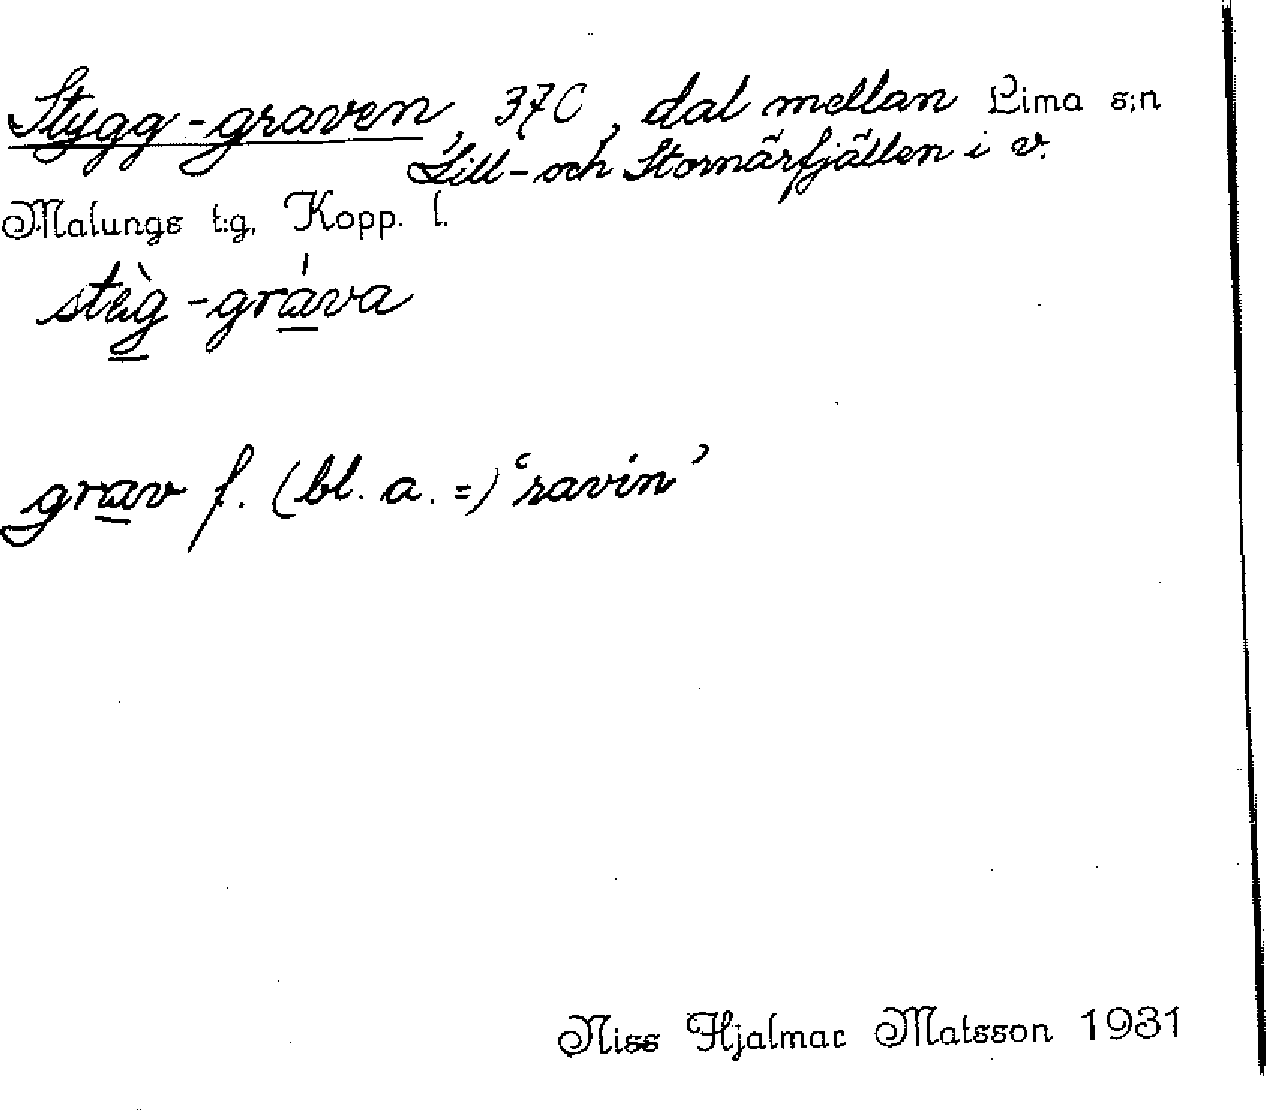 Stygg-graven, 37C, dal mellan Lima s:n
Lill- och Stornärfjällen i v.
Malungs t:g, Kopp. l.
stèg-gráva
grav f. (bl. a. =) ‘ravin’
Niss Hjalmar Matsson 1931